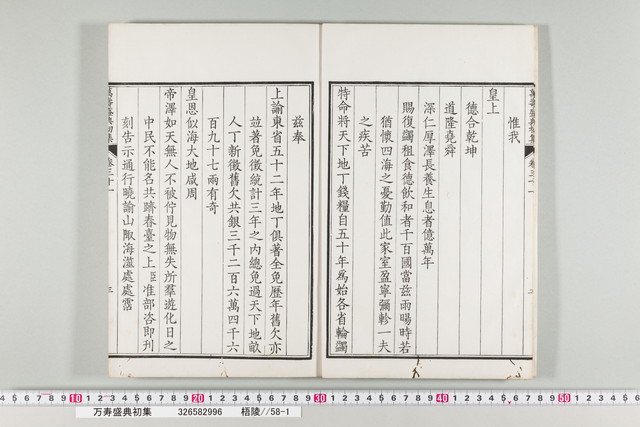 惟我
皇上
德合乾坤
道隆堯舜
深仁厚澤長養生息者億萬年
賜復蠲租食德飲和者千百國當茲雨暘時若
猶懷四海之憂勤值此家室盈寧彌軫一夫
之疾苦
特命將天下地丁錢糧自五十年為始各省輪蠲
茲奉
上諭東省五十二年地丁俱著全免歷年舊欠亦
竝著免徵統計三年之內總免過天下地畝
人丁新徵舊欠共銀三千二百六萬四千六
百九十七兩有奇
皇恩似海大地咸周
帝澤如天無人不被佇見物無失所羣遊化日之
中民不能名共躋春臺之上臣准部咨即刊
刻告示通行曉諭山陬海澨處處霑
萬壽盛典初集 卷三十一 三
万寿盛典初集 326582996 梧陵//58-1